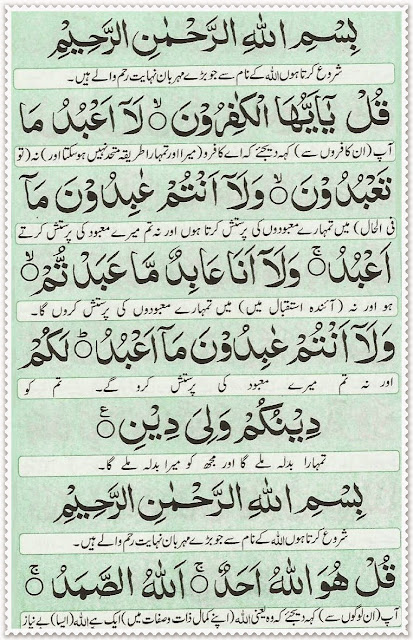 بِسْمِ اللهِ الرَّحْمٰنِ الرَّحِيْمِ
شروع کرتا ہوں اللہ کے نام سے جو بڑے مہربان نہایت رحم والے ہیں۔
قُلْ يٰۤاَيُّهَا الْكٰفِرُوْنَ ۙ لَاۤ اَعْبُدُ مَا
آپ (ان کافروں سے) کہہ دیجئے کہ اے کافرو (میرا اور تمہارا طریقہ متحد نہیں ہو سکتا اور) نہ (تو
تَعْبُدُوْنَ ۙ وَلَاۤ اَنْتُمْ عٰبِدُوْنَ مَاۤ
فی الحال) میں تمہارے معبودوں کی پرستش کرتا ہوں اور نہ تم میرے معبود کی پرستش کرتے
اَعْبُدُ ۚ وَلَاۤ اَنَا عَابِدٌ مَّا عَبَدْتُّمْ ۙ
ہو اور نہ (آئندہ استقبال میں) میں تمہارے معبودوں کی پرستش کروں گا۔
وَلَاۤ اَنْتُمْ عٰبِدُوْنَ مَاۤ اَعْبُدُ ؕ لَكُمْ
اور نہ تم میرے معبود کی پرستش کرو گے۔ تم کو
دِيْنُكُمْ وَلِىَ دِيْنِ ۠ ع
تمہارا بدلہ ملے گا اور مجھ کو میرا بدلہ ملے گا۔
بِسْمِ اللهِ الرَّحْمٰنِ الرَّحِيْمِ
شروع کرتا ہوں اللہ کے نام سے جو بڑے مہربان نہایت رحم والے ہیں۔
قُلْ هُوَ اللهُ اَحَدٌ ۚ اَللهُ الصَّمَدُ ۚ
آپ (ان لوگوں سے) کہہ دیجئے کہ وہ یعنی اللہ (اپنے کمال ذات و صفات میں) ایک ہے اللہ (ایسا) بے نیاز